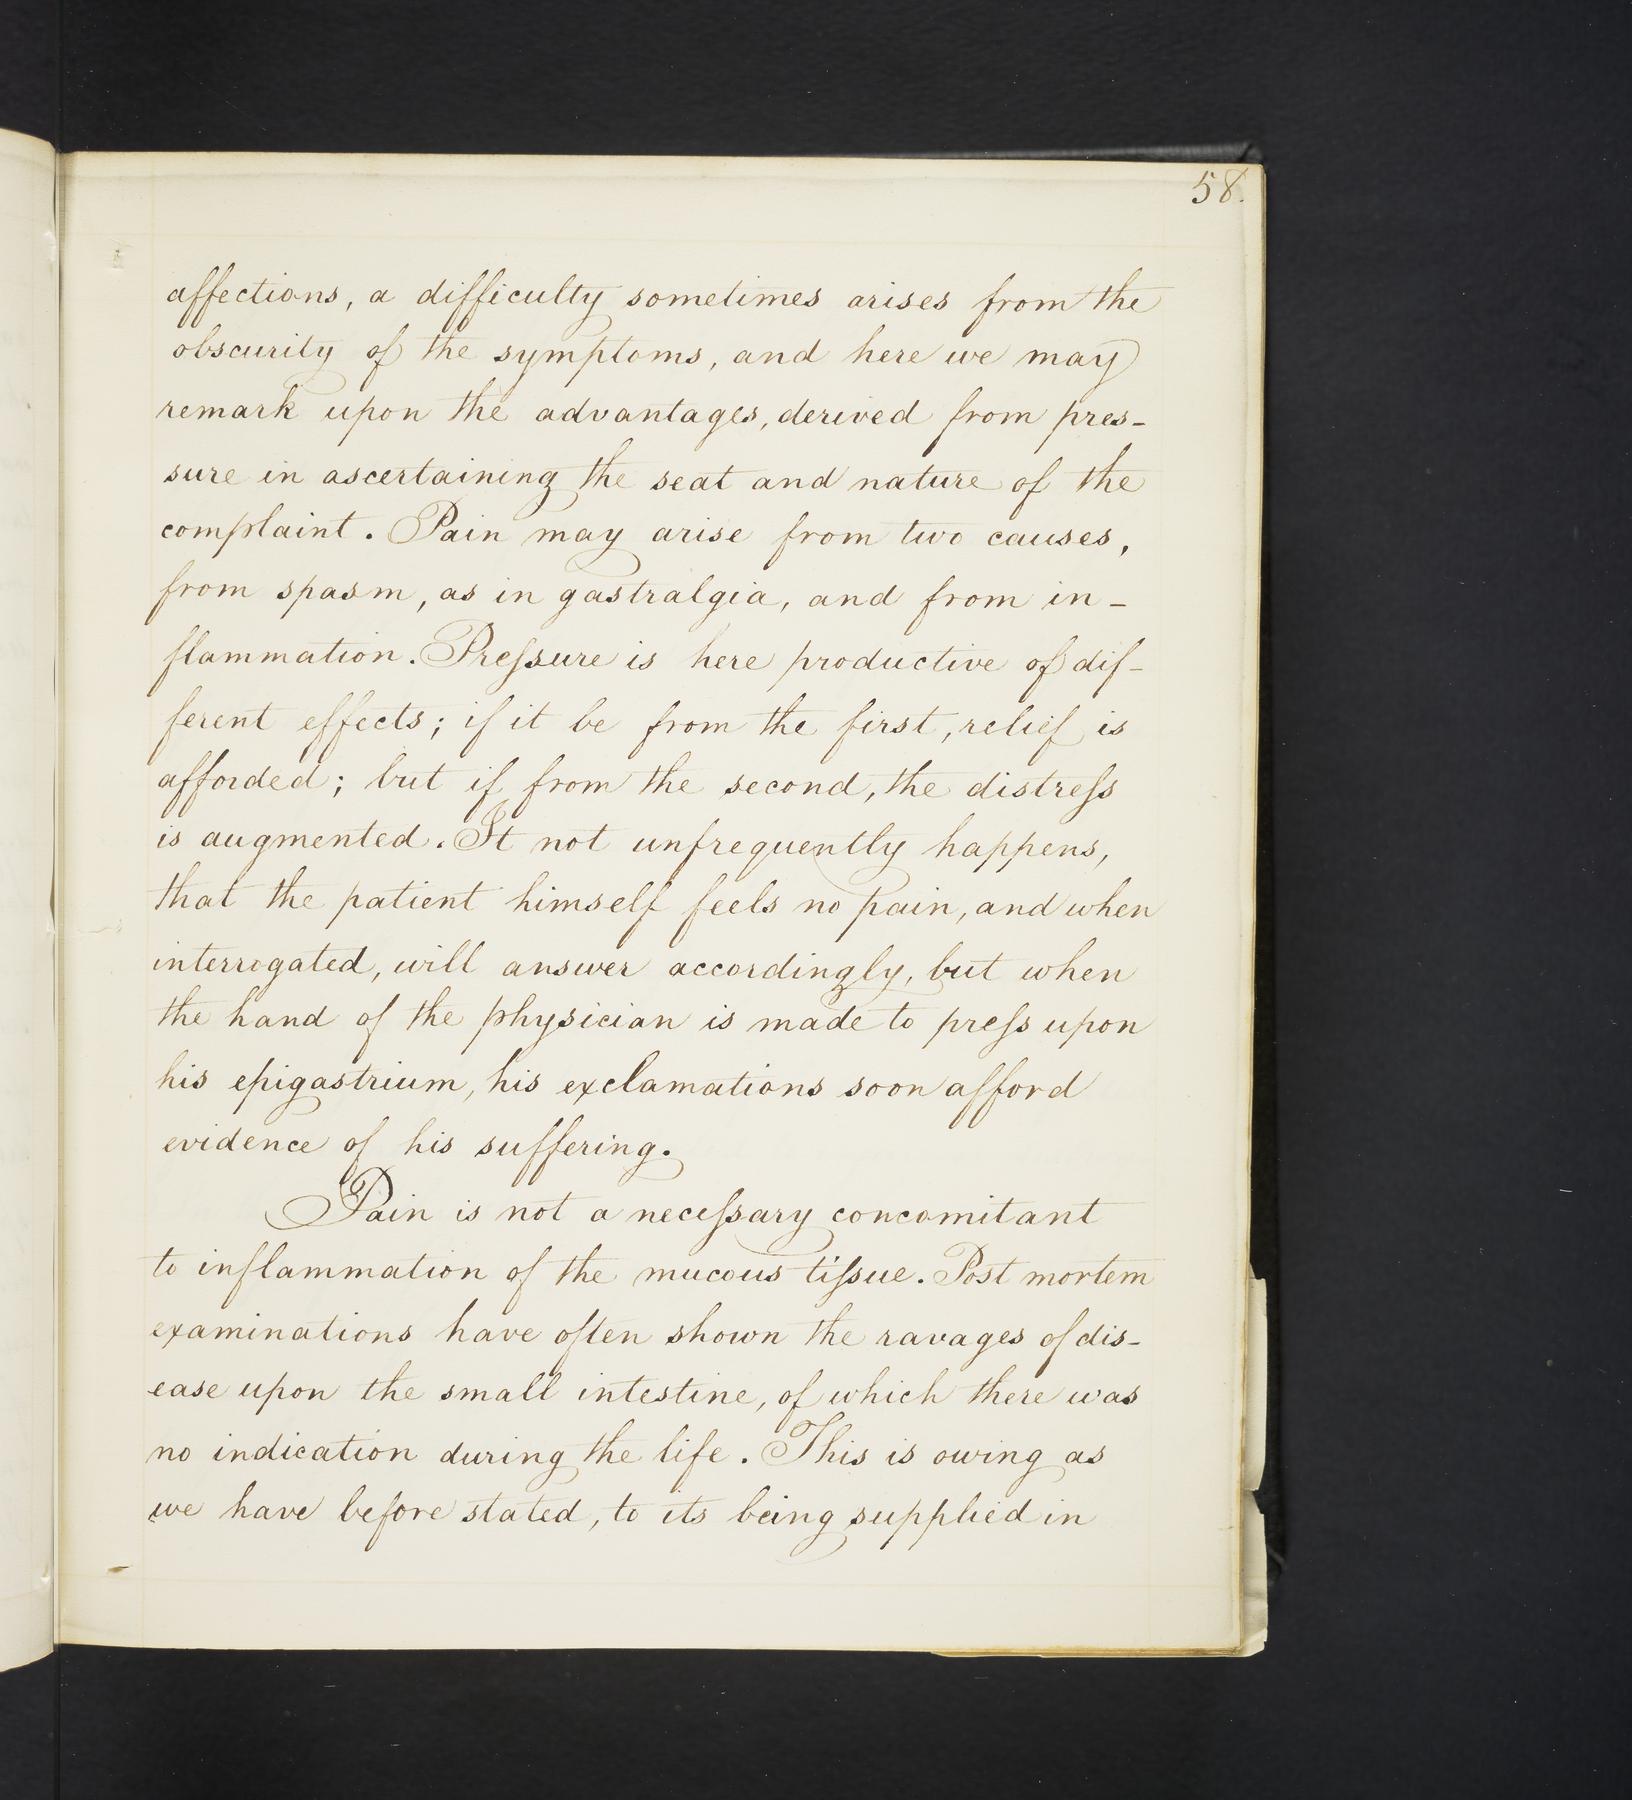 58.
affections, a difficulty sometimes arises from the
obscurity of the symptoms, and here we may
remark upon the advantages, derived from pres-
sure in ascertaining the seat and nature of the
complaint. Pain may arise from two causes,
from spasm, as in gastralgia, and from in-
flammation. Preſsure is here productive of dif-
ferent effects; if it be from the first, relief is
afforded; but if from the second, the distreſs
is augmented. It not unfrequently happens,
that the patient himself feels no pain, and when
interrogated, will answer accordingly, but when
the hand of the physician is made to preſs upon
his epigastrium, his exclamations soon afford
evidence of his suffering.
Pain is not a neceſsary concomitant
to inflammation of the mucous tiſsue. Post mortem
examinations have often shown the ravages of dis-
ease upon the small intestine, of which there was
no indication during the life. This is owing as
we have before stated, to its being supplied in